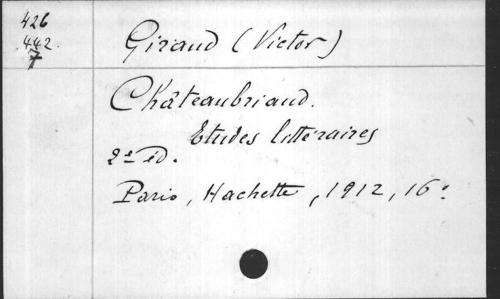 426
442.
7
Giraud (Victor)
Châteaubriand.
Etudes littéraires
2e éd.
Paris, Hachette, 1912, 16°.